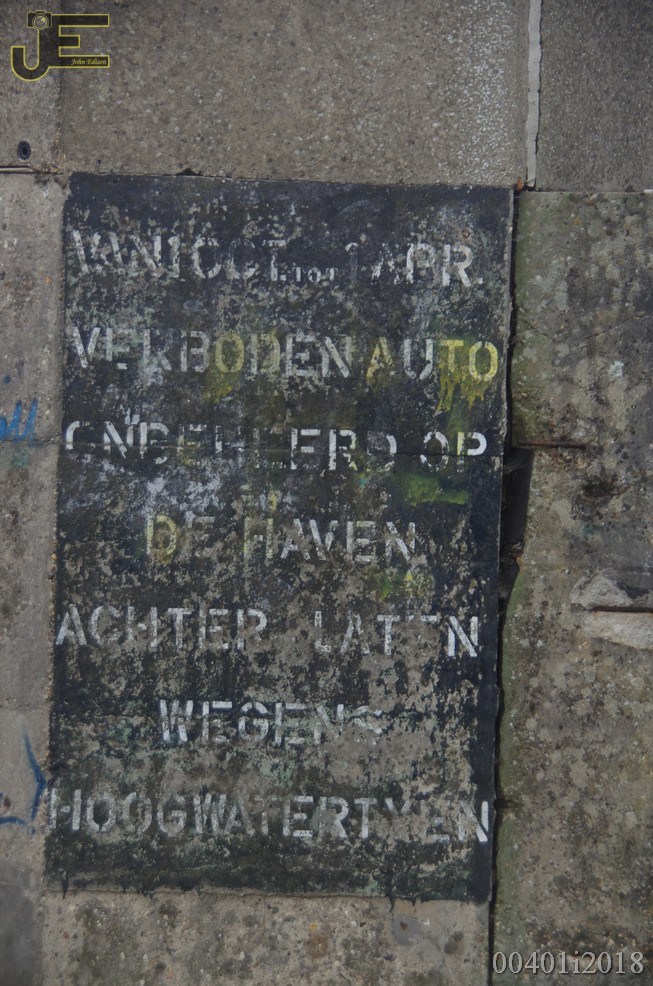 JE
John Edison
VAN 1 OCT. TOT 1 APR.
VERBODEN AUTO
ONBEHEERD OP
DE HAVEN
ACHTER LATEN
WEGENS
HOOGWATERTYEN
00401i2018